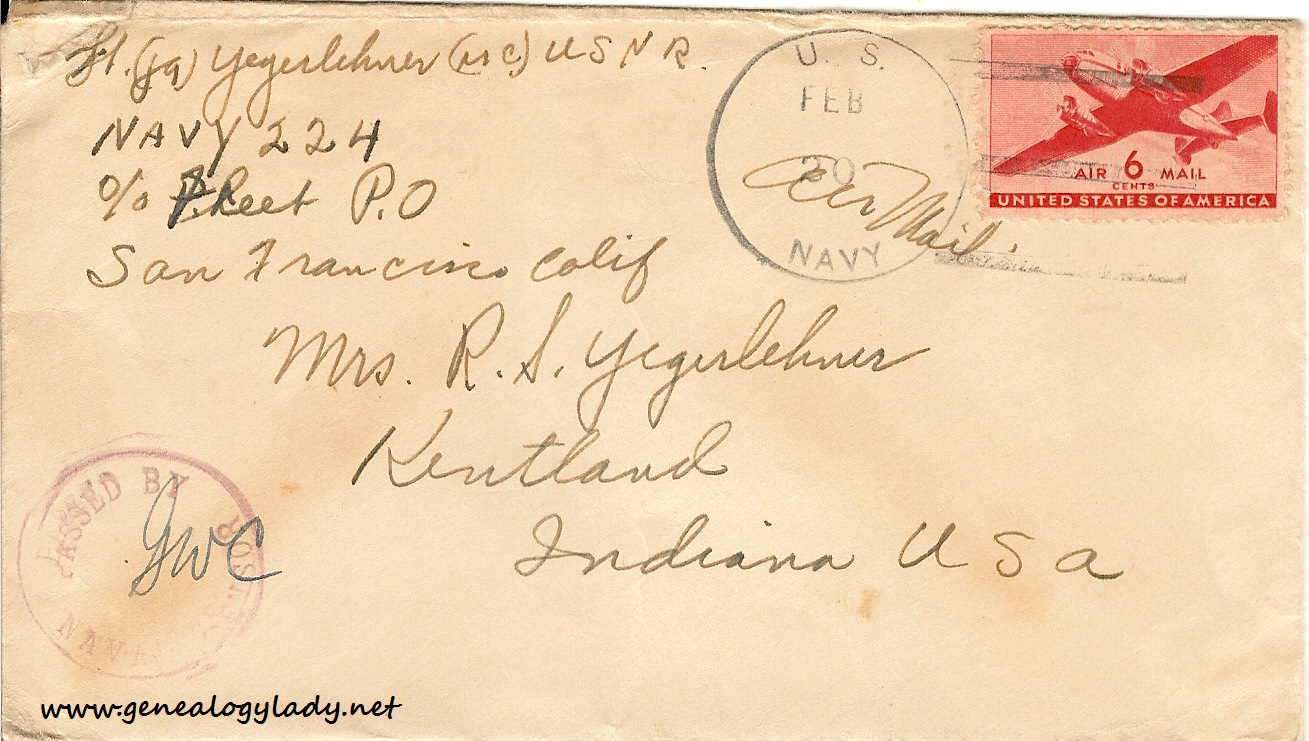 Lt. (jg) Yegerlehner (MC) USNR.
NAVY 224
c/o Fleet P.O
San Francisco Calif
U. S.
FEB
20
NAVY
Air Mail.
AIR 6 MAIL
CENTS
UNITED STATES OF AMERICA
Mrs. R. S. Yegerlehner
Kentland
Indiana USA
PASSED BY
NAVAL CENSOR
GWC
www.genealogylady.net